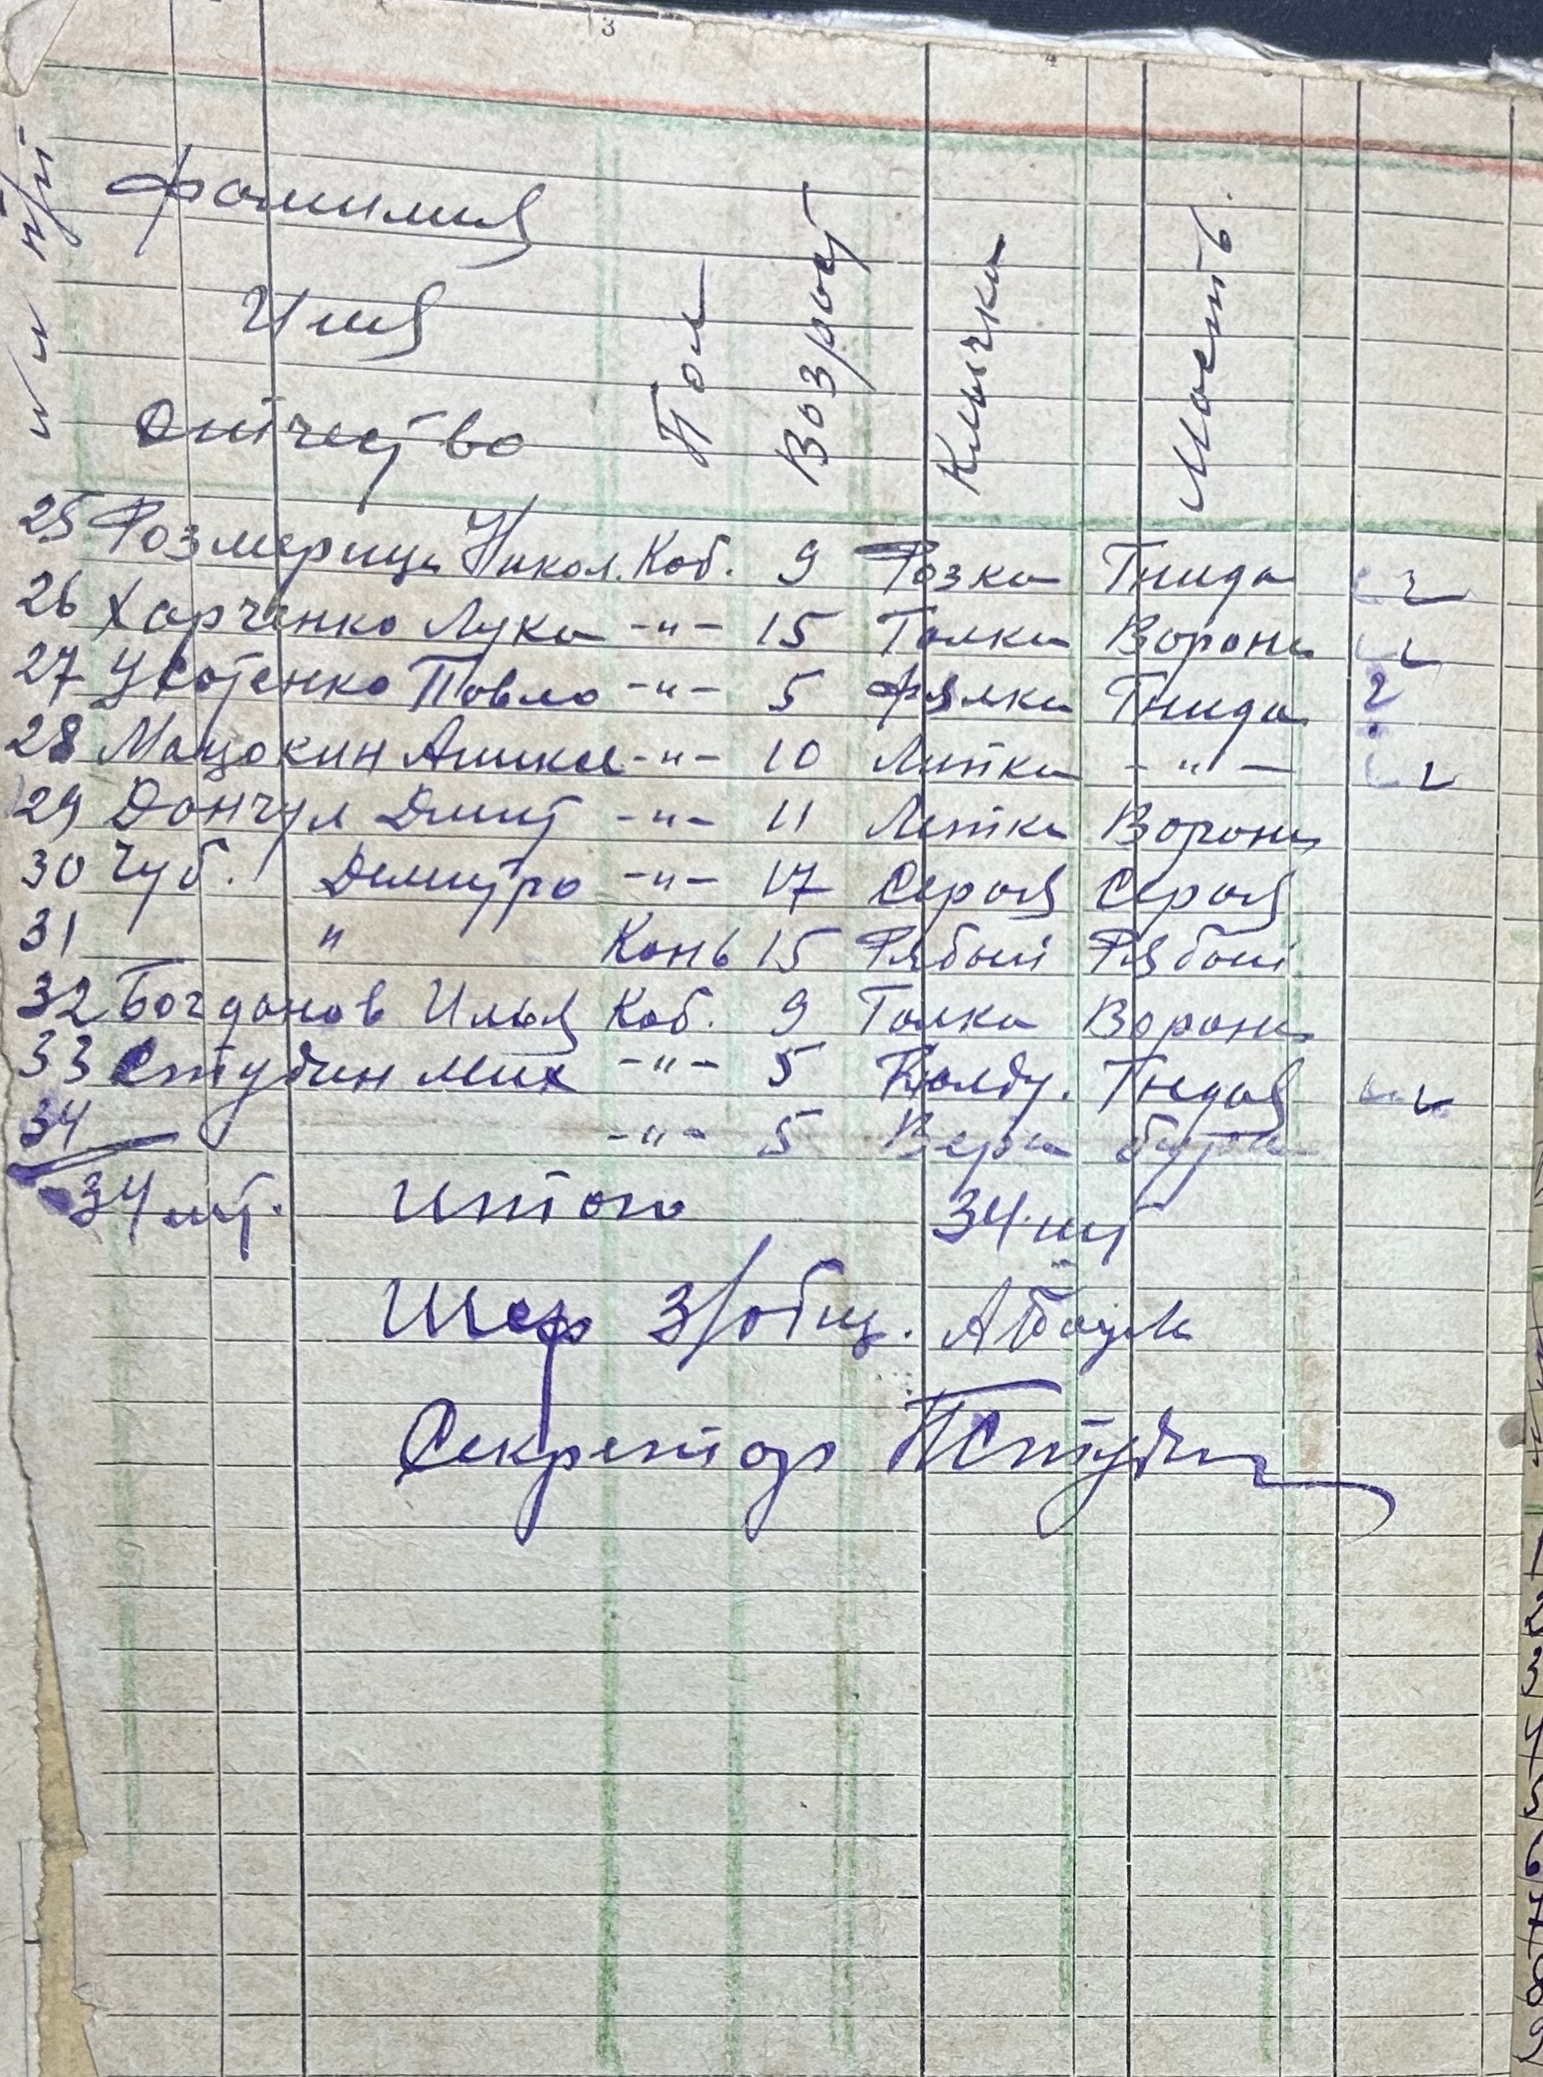 3
4
п/п Фамилия Имя Отчество Пол Возраст Кличка Масть.
25 Розмерица Никол. Коб. 9 Розка Гнида
26 Харченко Лука -"- 15 Галка Ворона
27 Усатенко Павло -"- 5 Фялка Гнида ?
28 Мацокин -"- 10 Литка -"-
29 Данчул Дмит -"- 11 Литка Ворона
30 Чуб. Демитро -"- 17 Серая Серая
31 " Конь 15 Рябый Рябый
32 Богданов Илья Коб. 9 Галка Ворона
33 Студчин Мих -"- 5 Гнидая
34 -"- 5
34 шт. Итого 34 шт
з/общ.
Секретар ПСтудчин